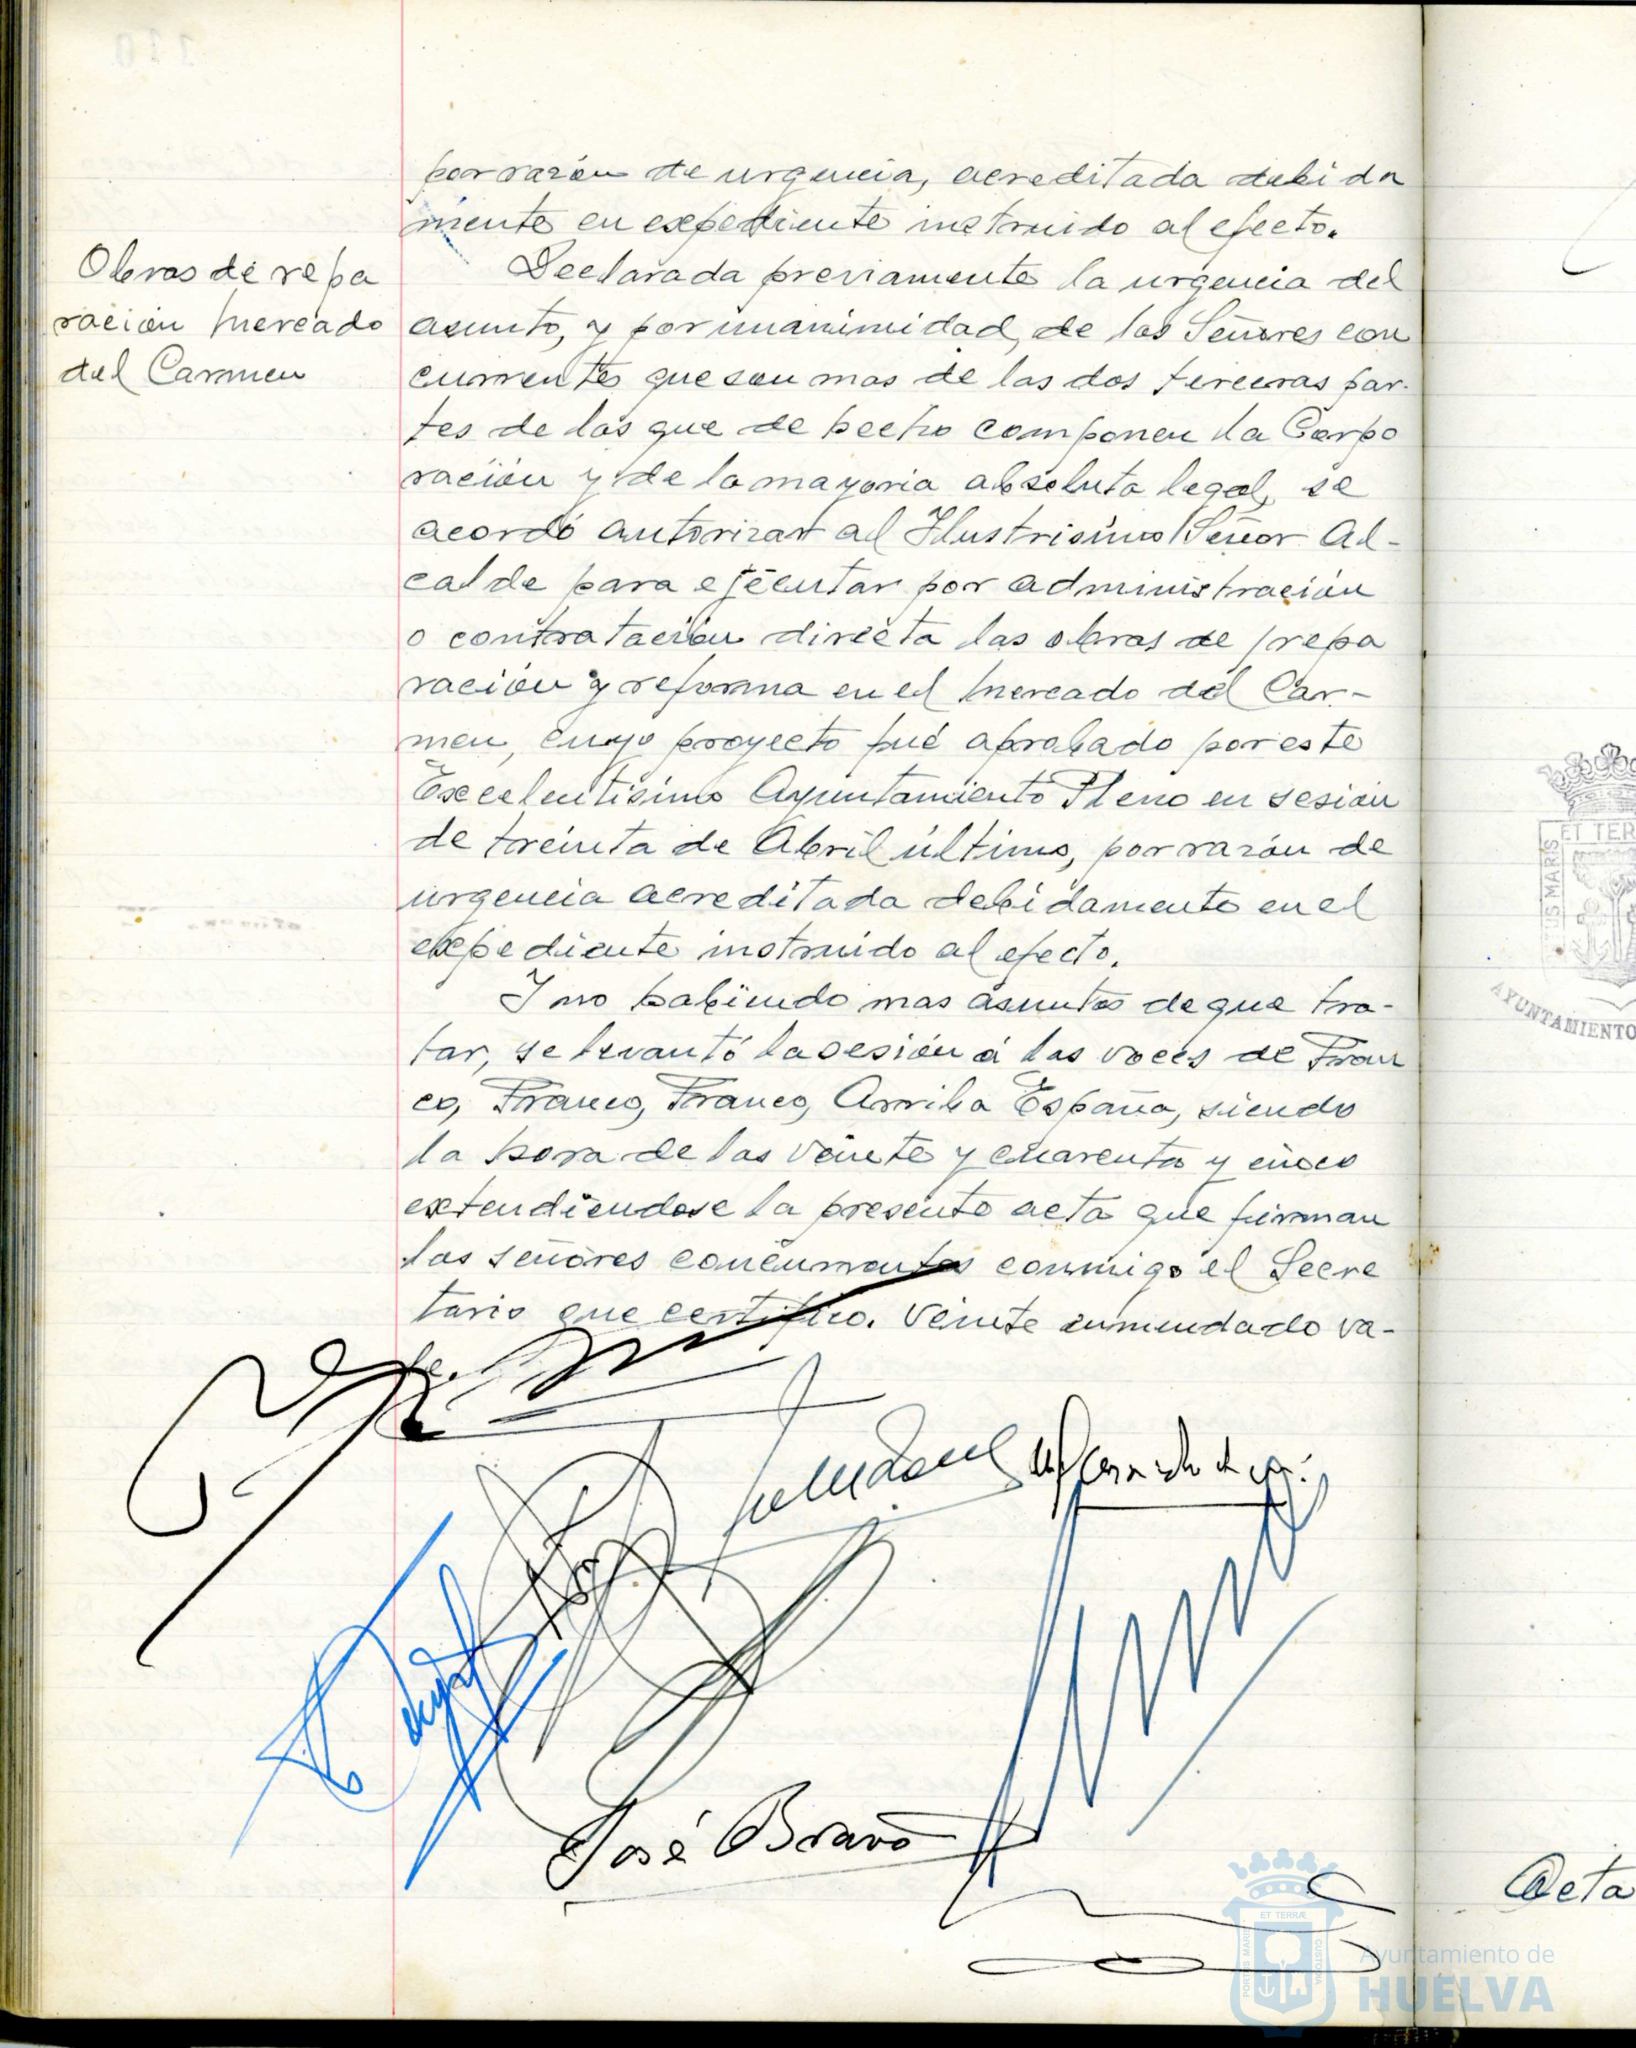 por razón de urgencia, acreditada debida
mente en expediente instruido al efecto.
Obras de repa
ración Mercado
del Carmen
Declarada previamente la urgencia del
asunto, y por unanimidad, de los Señores con
currentes que son mas de las dos terceras par-
tes de los que de hecho componen la Corpo
ración y de la mayoria absoluta legal, se
acordó autorizar al Ilustrisimo Señor Al-
calde para ejecutar por administración
o contratación directa las obras de repa
ración y reforma en el Mercado del Car-
men, cuyo proyecto fué aprobado por este
Excelentisimo Ayuntamiento Pleno en sesión
de treinta de Abril último, por razón de
urgencia acreditada debidamente en el
expediente instruido al efecto.
Y no habiendo mas asuntos de que tra-
tar, se levantó la sesión á las voces de Fran
co, Franco, Franco, Arriba España, siendo
la hora de las veinte y cuarenta y cinco
extendiendose la presente acta que firman
los señores concurrentes conmigo el Secre
tario que certifico. Veinte enmendado va-
le.
José Bravo
Acta
ET TERR
US MARIS
AYUNTAMIENTO
PORTUS MARIS
ET TERRÆ
CUSTODIA
Ayuntamiento de
HUELVA